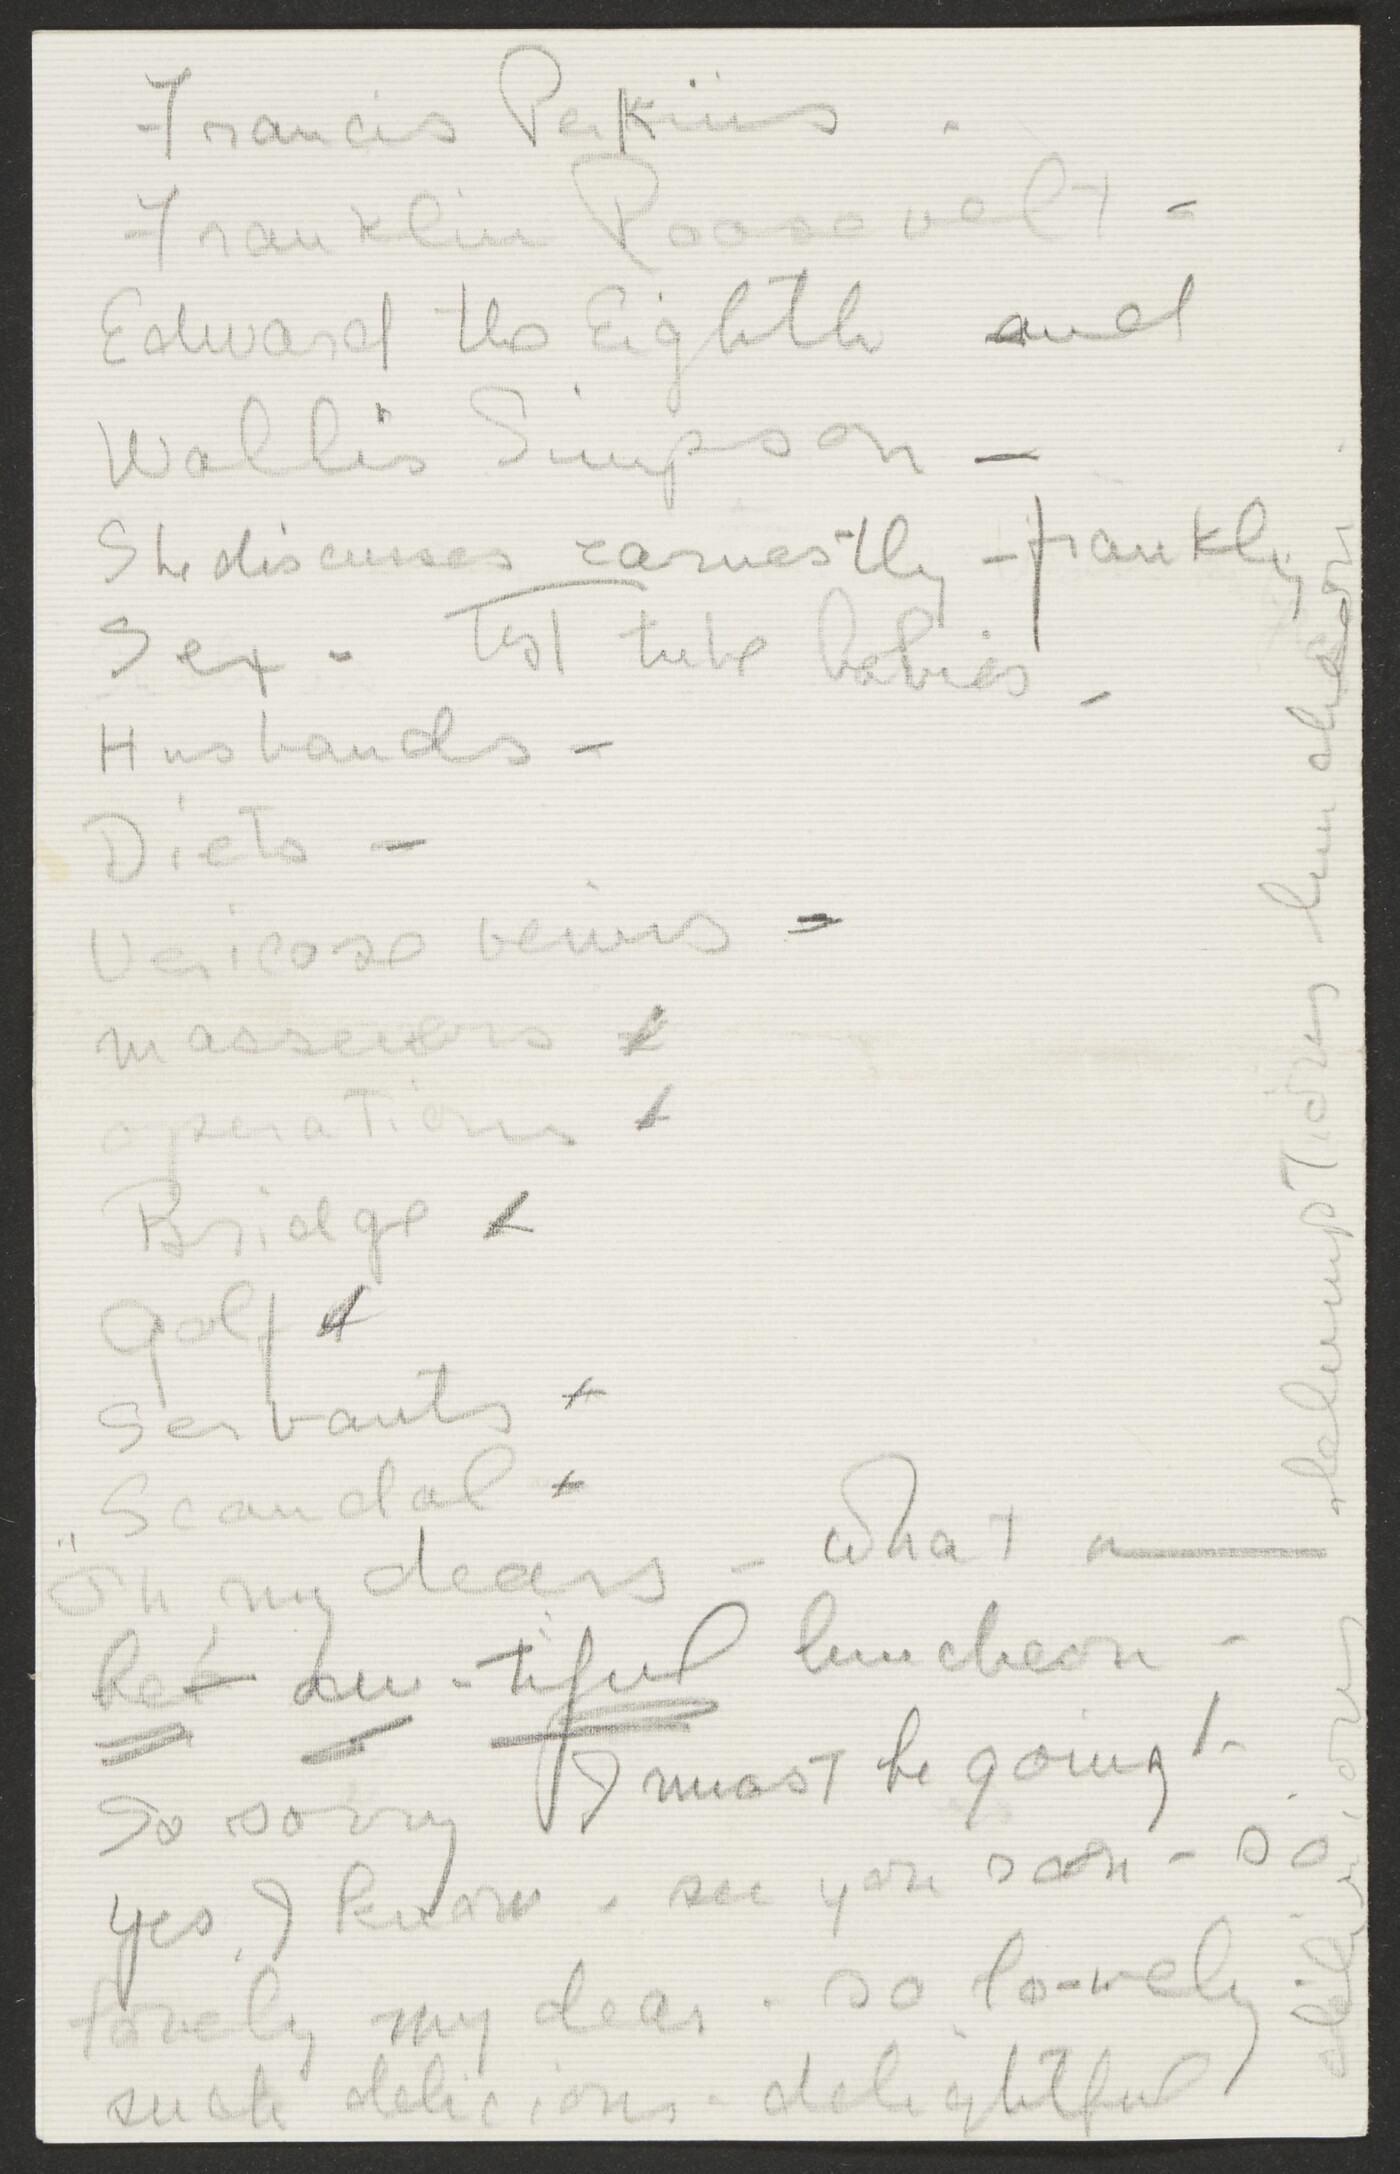 Francis Perkins -
Franklin Roosevelt -
Edward the Eighth and
Wallis Simpson —
She discusses earnestly - frankly
Sex - test tube babies -
Husbands -
Diets -
Vericose veins -
masseurs -
operations -
Bridge -
Golf -
Servants -
Scandal -
"Oh my dears - what a —
be-au-tiful luncheon -
So sorry I must be going! -
yes, I know - see you soon - so
lovely my dear - so lo-vely
such delicious - delightful
delicious
talumptious luncheon.